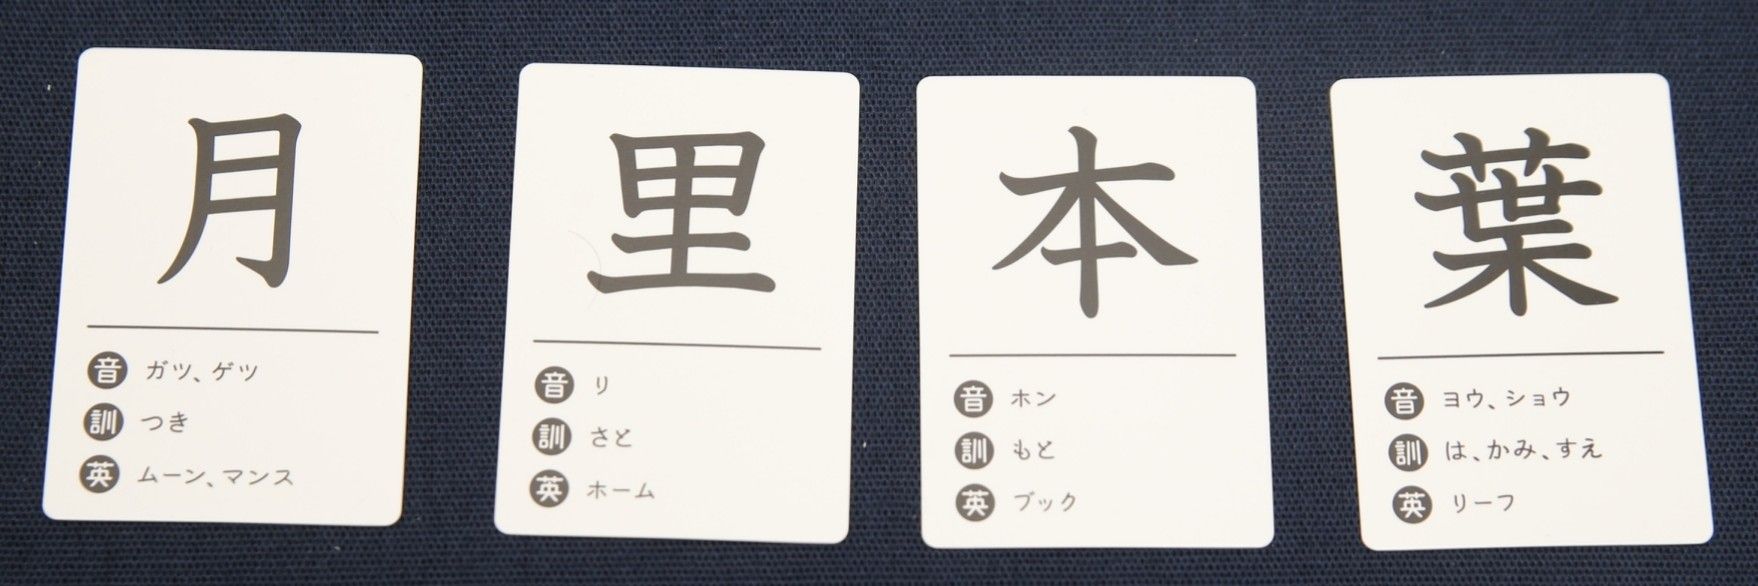 月
音 ガツ、ゲツ
訓 つき
英 ムーン、マンス
里
音 リ
訓 さと
英 ホーム
本
音 ホン
訓 もと
英 ブック
葉
音 ヨウ、ショウ
訓 は、かみ、すえ
英 リーフ